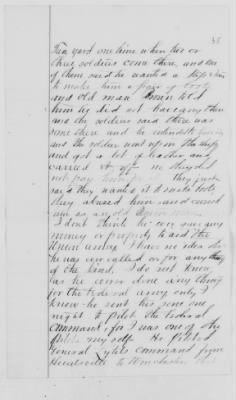 38
yard one time when two or
three soldiers came there, and one
of them said he wanted a
to make him a pair of boots
and old man told
him he did not have any there
and the soldiers said there was
some there and he
and the soldier went up on the
and got a lot of leather and
carried it off. no they did
not pay They just
said they wanted it to make boots
they abused him and cursed
him as an old Union man.
I dont think he ever gave any
money or property to aid the
Union army. I have no idea
he was ever called on for any thing
of the kind. I do not know
as he ever done any thing
for the Federal army only I
know he sent his sone one
night to pilot the Federal
command, for I was one of the
pilots my self. He piloted
General command from
Huntsville to